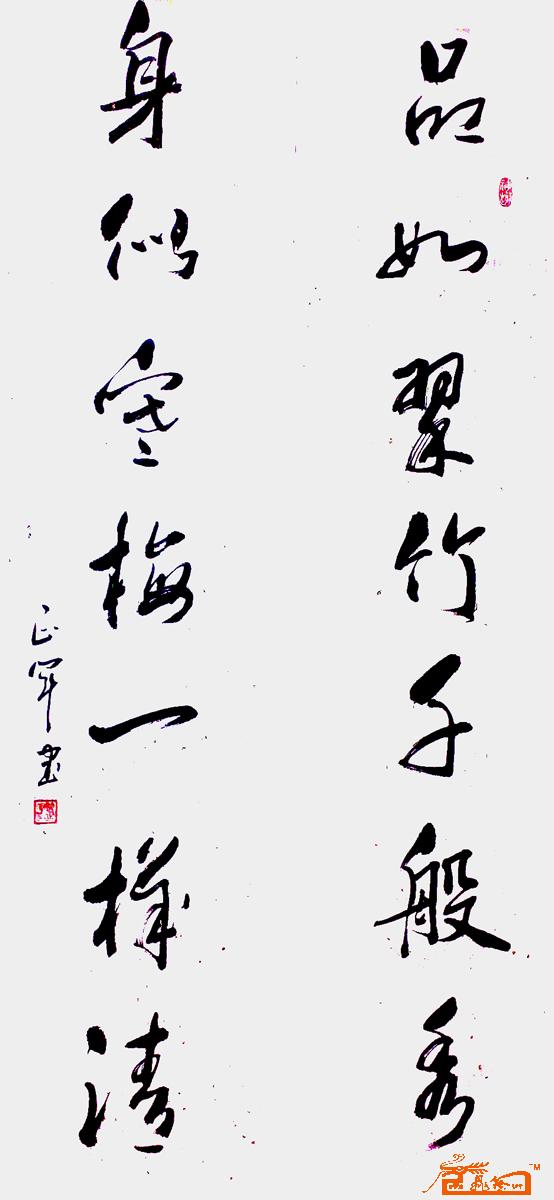 品如翠竹千般秀
身似寒梅一樣清
正军书